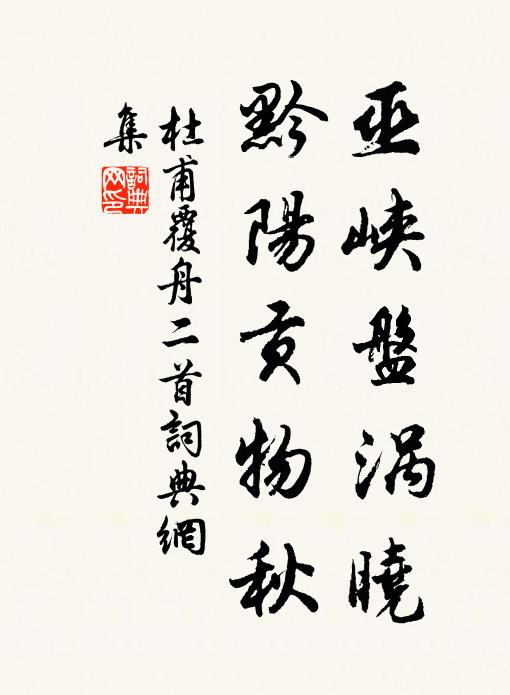 巫峽盤渦曉
黔陽貢物秋
杜甫覆舟二首詞典網
集
詞典
网印